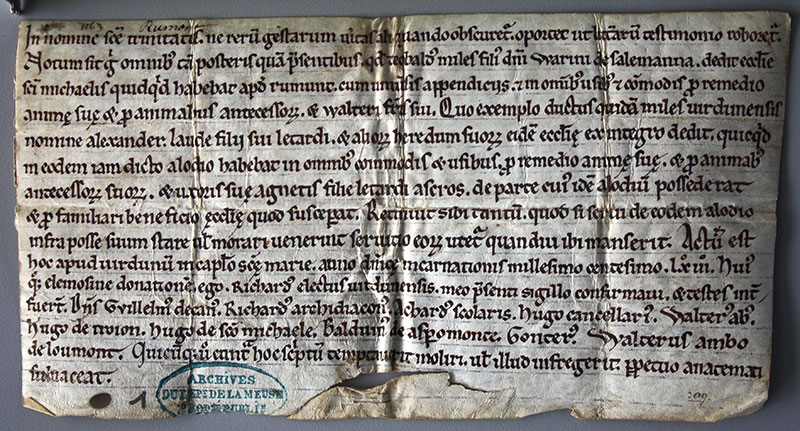 1163 Rumont
In nomine scē trinitatis. ne rerū gestarum ueritas aliquando obscuretᷣ. oportet ut litterarū testimonio roboretᷣ.
Notum sit gͦ omnibꝰ tā posteris quā p̄sentibus. qđ teobaldꝰ miles filiꝰ dn̄i Warini de salemanna. dedit eccƚie
scī michaelis quidqͥd habebat apđ rumunt. cum uniuͥsis appendiciis. ⁊ in omībꝰ usibꝰ ⁊ cōmodis ꝓ remedio
animę suę & ꝓ animabus antecessoꝝ. & walteri frīs sui. Quo exemplo ductus quidā miles uirdunensis
nomine alexander. laude filii sui letardi. & alioꝝ heredum suoꝝ eidē eccƚię ex integro dedit. quicqͥd
in eodem iam dicto alodio habebat in omnibꝰ commodis & usibus. ꝓ remedio animę suę. & ꝓ animabꝰ
antecessoꝝ suoꝝ. & uxoris suę agnetis filie letardi aseros. de parte cuiꝰ idē alodiū possederat
& ꝓ familiari beneficio ęccƚię quod susceperat. Retinuit sibi tantū. quod si serui de eodem alodio
infra posse suum stare uƚ morari uenerint seruitio eoꝝ utetᷣ quandiu ibi manserit. Actū est
hoc apud uirdunū in capƚo scē marie. anno dn̄icę incarnationis millesimo centesimo. Lx iii. Huiꝰ
qͦꝫ elemosine donationē. ego. Richardꝰ electus uirdunensis. meo p̄senti sigillo confirmaui. & testes int̄
fuert̄. Dn̄s Gvillelmꝰ decanꝰ. Richardꝰ archidiaconꝰ. Achardꝰ scolaris. Hugo cancellariꝰ. Walterꝰ abƀ.
Hugo de tivion. Hugo de scō michaele. Balduinꝰ de asꝑomonte. Gonterꝰ. Walterus ambo
de loumont. Quicūqꝫ cuncta hoc scͥptū temptauerit moliri. uƚ illud infregerit. ꝑpetuo anatemati
subiaceat.
1
ARCHIVES
DU DEPT DE LA MEUSE
209